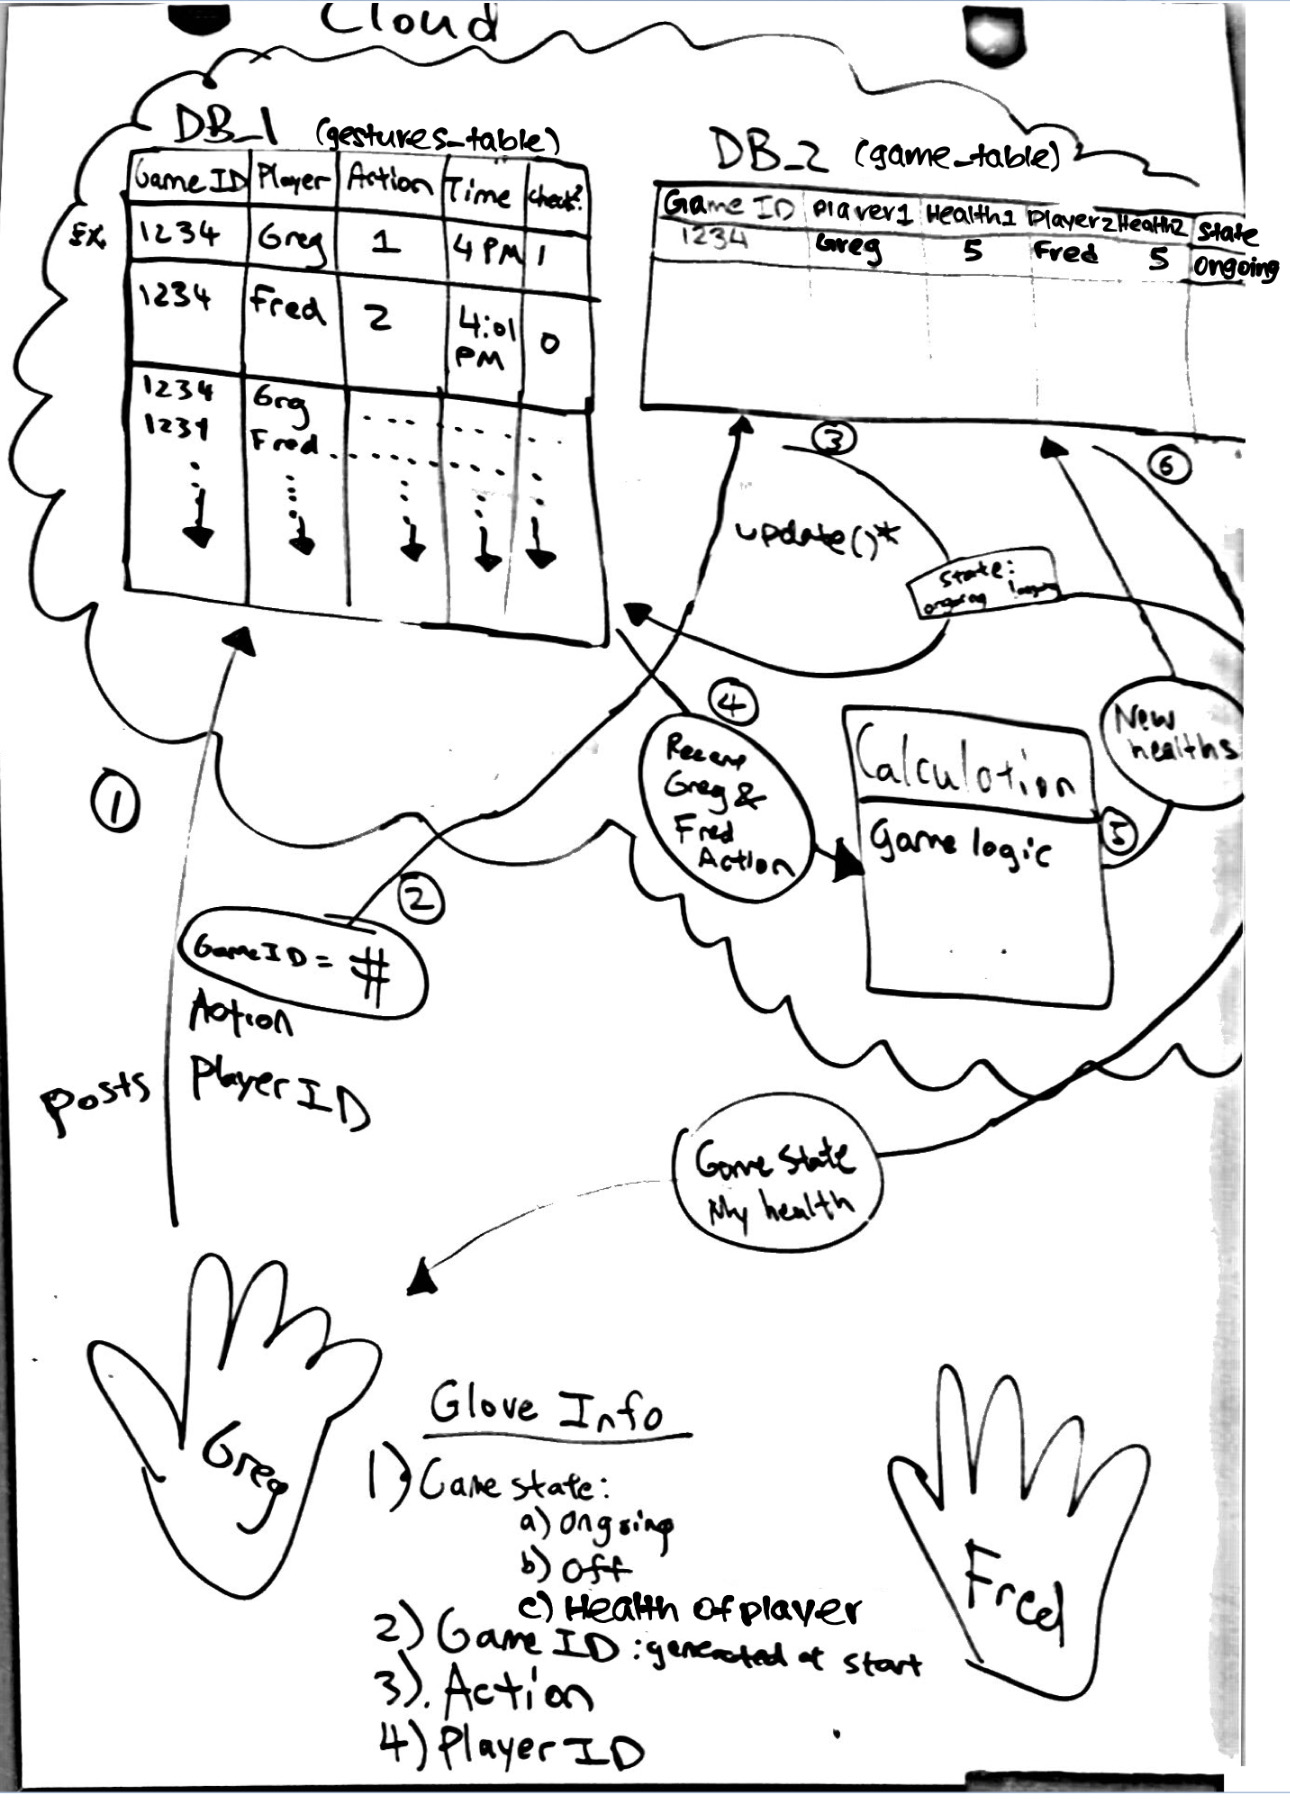 Cloud
DB_1 (gestures_table)
Game ID Player Action Time check?
Ex. 1234 Greg 1 4 PM 1
1234 Fred 2 4:01 PM 0
1234 Grg
1234 Fred
DB_2 (game_table)
Game ID Player1 Health1 Player2 Health2 State
1234 Greg 5 Fred 5 Ongoing
3
6
update()*
State:
ongoing
4
Greg &
Fred
Action
Calculation
Game logic
5
New
healths
1
2
GameID = #
Action
PlayerID
Posts
Game State
My health
Greg
Fred
Glove Info
1) Game state:
a) Ongoing
b) Off
c) Health of player
2) Game ID : generated at start
3). Action
4) Player ID